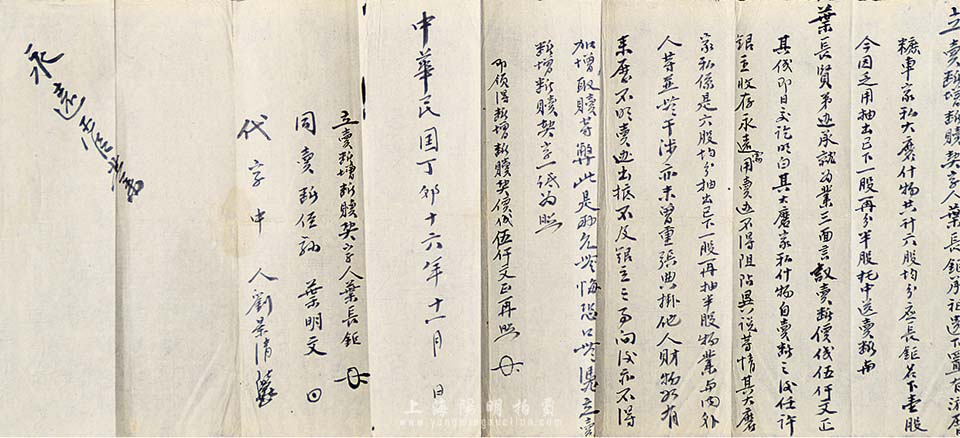 立賣断增断贖契字人葉長鉅承祖遺下置有
糖車家私大磨什物共计六股均分应長鉅名下壹股
今因乏用抽出己下一股再分半股托中送賣断与
葉長賢弟边承就为業三面言議賣断價伐伍仟文正
其伐即日交讫明白其大磨家私什物自賣断之後任许
银主收存永遠为用賣边不得阻占異说等情其大磨
家私係是六股均分抽出己下一股再抽半股物業与内外
人等並無干涉亦未曾重張典掛他人財物如有
来歷不明賣边出抵不及银主之事向後永不得
加增取贖等弊此是两允無悔恐口無憑立賣
断增断贖契字一纸为照
即俏得断增断贖契價伐伍仟文正再照
中華民国丁卯十六年十一月 日
立賣断增断贖契字人葉長鉅
同賣断侄孙 葉明文
代字中人劉景清
永遠
上海陽明拍賣
www.yangmingauction.com